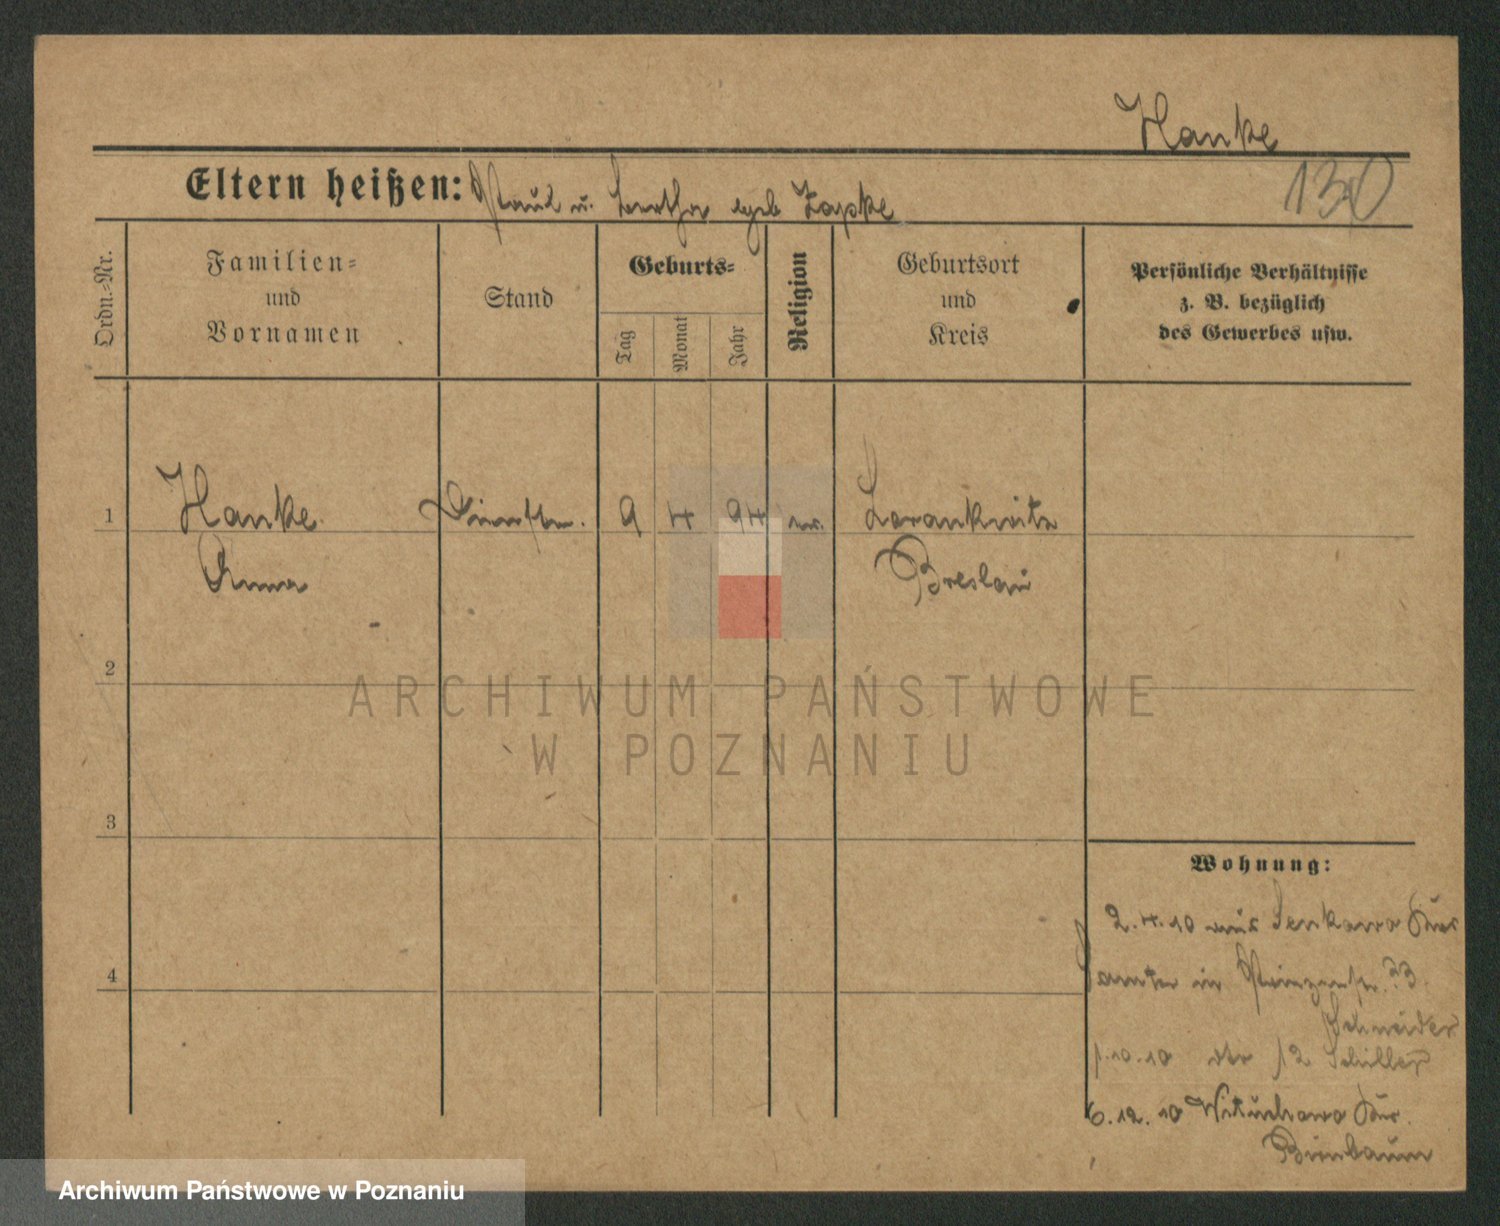 Hanke
130
Eltern heißen: Paul u. Bertha geb Zapke
Ordn.-Nr.
Familien-
und
Vornamen
Stand
Geburts-
Tag
Monat
Jahr
Religion
Geburtsort
und
Kreis
Persönliche Verhältnisse
z. B. bezüglich
des Gewerbes usw.
1
Hanke Dienstm. 9 4 94 ev.
Anna Breslau
2
3
4
Wohnung:
2.4.10 aus Senkowo Kreis
Samter in Prinzenstr. 33
Schneider
1.10.10 dto 12 Schiller
6.12.10 Wituchowo Kr.
Birnbaum
ARCHIWUM PAŃSTWOWE
W POZNANIU
Archiwum Państwowe w Poznaniu